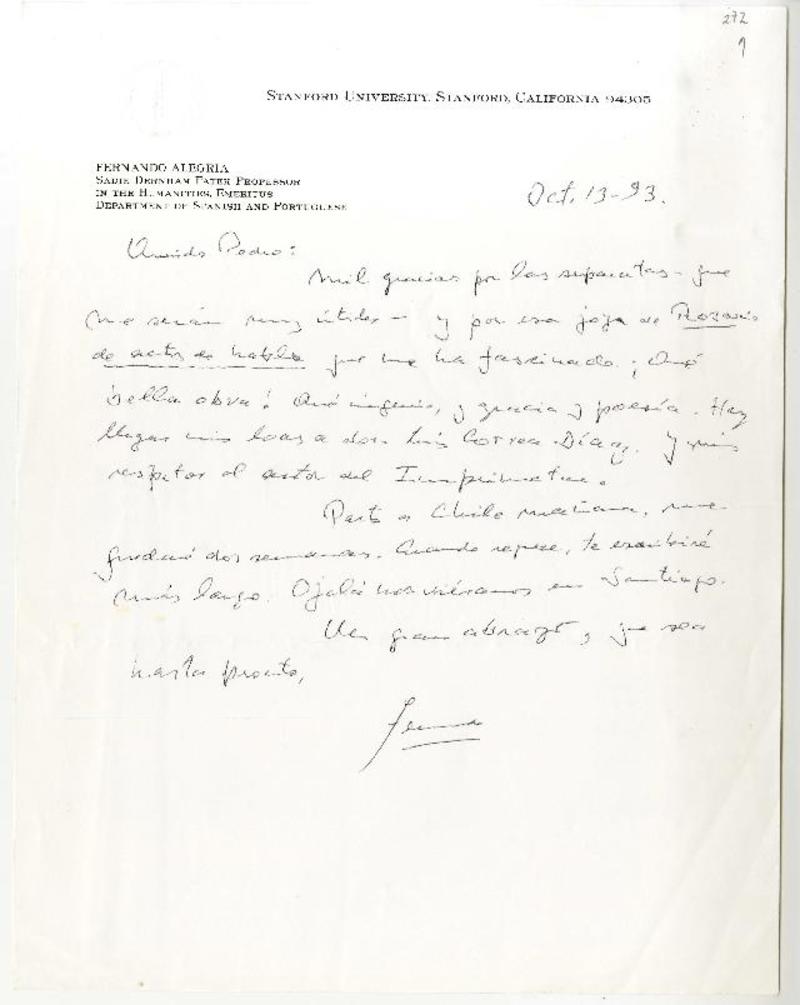 272
9
STANFORD UNIVERSITY, STANFORD, CALIFORNIA 94305
FERNANDO ALEGRIA
SADIE DERNHAM PATEK PROFESSOR
IN THE HUMANITIES, EMERITUS
DEPARTMENT OF SPANISH AND PORTUGUESE
Oct. 13-93.
Querido Pedro:
Mil gracias por las separatas - que
me serán muy útiles - y por esa joya de Rosario
de actos de habla que me ha fascinado. ¡Qué
bella obra! Qué ingenio, y gracia y poesía. Haz
llegar mis loas a don Luis Correa Díaz. Y mis
respetos al autor del Imprimatur.
Parto a Chile mañana, me
quedaré dos semanas. Cuando regrese, te escribiré
más largo. Ojalá nos viéramos en Santiago.
Un gran abrazo, que sea
hasta pronto,
Fernando